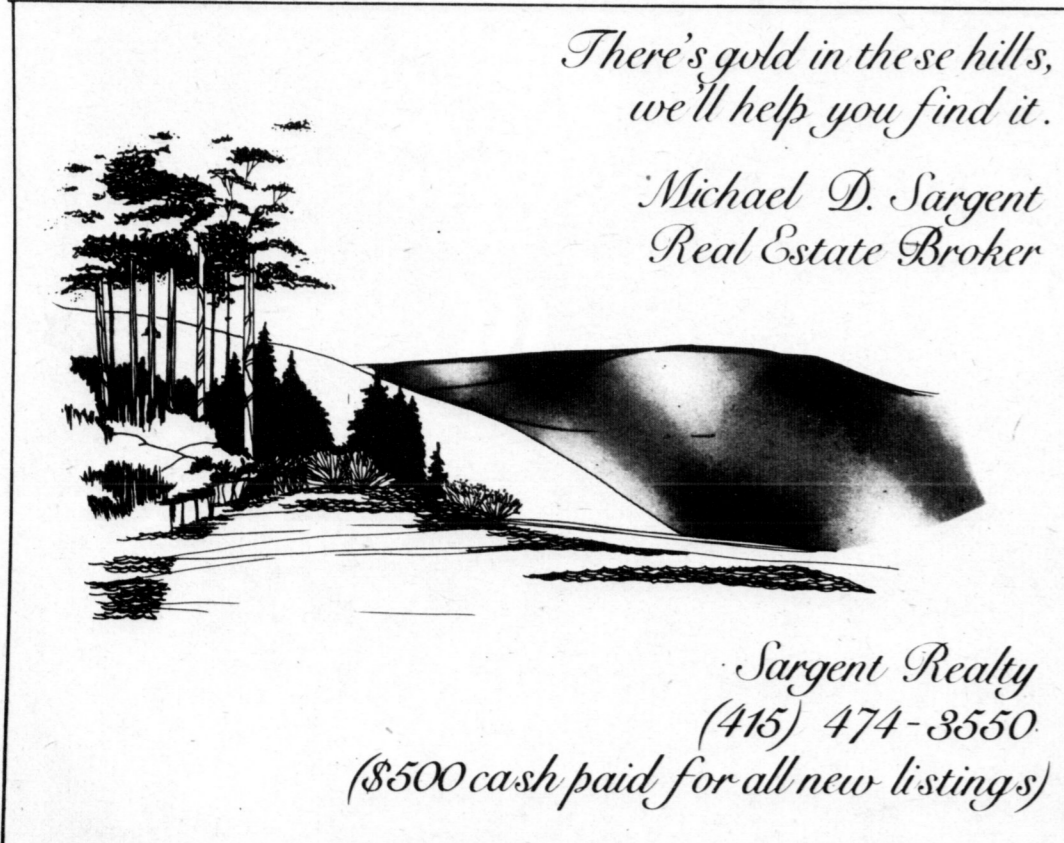 There's gold in these hills,
we'll help you find it.
Michael D. Sargent
Real Estate Broker
Sargent Realty
(415) 474-3550
($500 cash paid for all new listings)